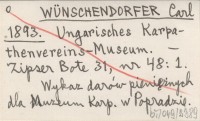 WÜNSCHENDORFER Carl
1893. Ungarisches Karpa-
thenvereins-Museum. —
Zipser Bote 31, nr 48: 1.
Wykaz darów pieniężnych
dla Muzeum Karp. w Popradzie.